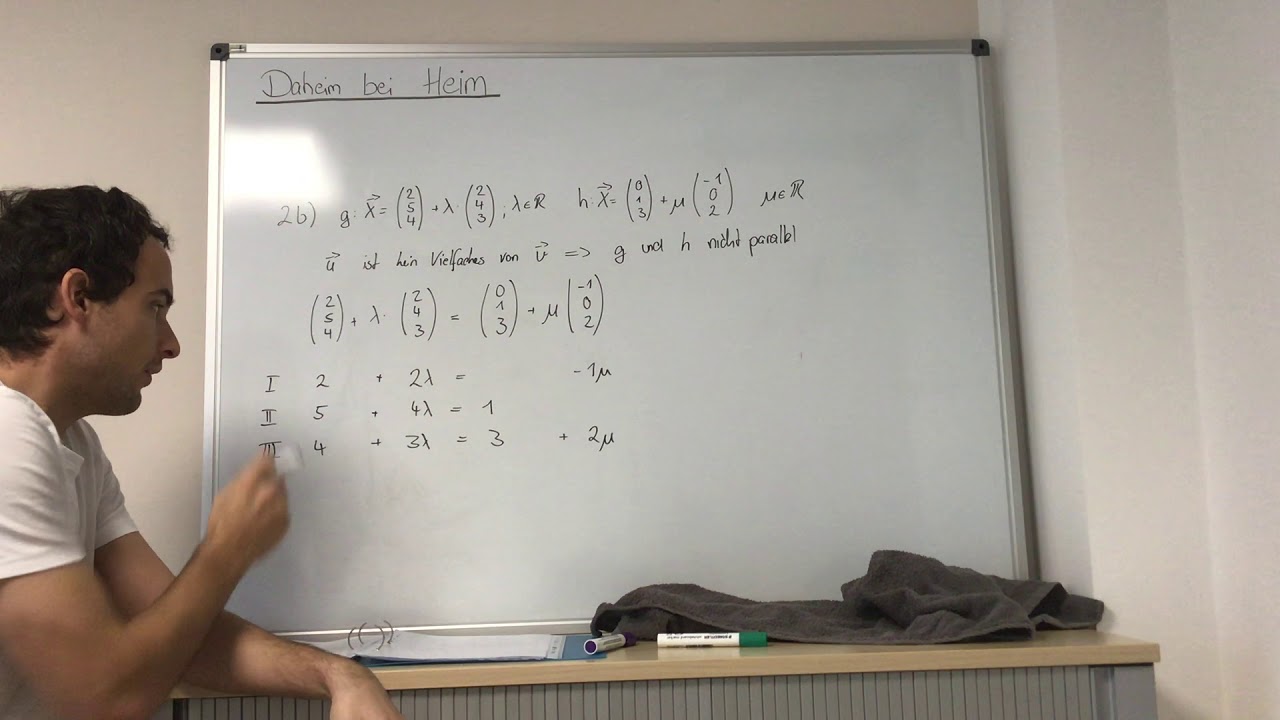 Daheim bei Heim
2b) g: X⃗ = (2 5 4) + λ · (2 4 3) ; λ∈ℝ h: X⃗ = (0 1 3) + μ (-1 0 2) μ∈ℝ
u⃗ ist kein Vielfaches von v⃗ => g und h nicht parallel
(2 5 4) + λ · (2 4 3) = (0 1 3) + μ (-1 0 2)
I 2 + 2λ = -1μ
II 5 + 4λ = 1
III 4 + 3λ = 3 + 2μ
STAEDTLER